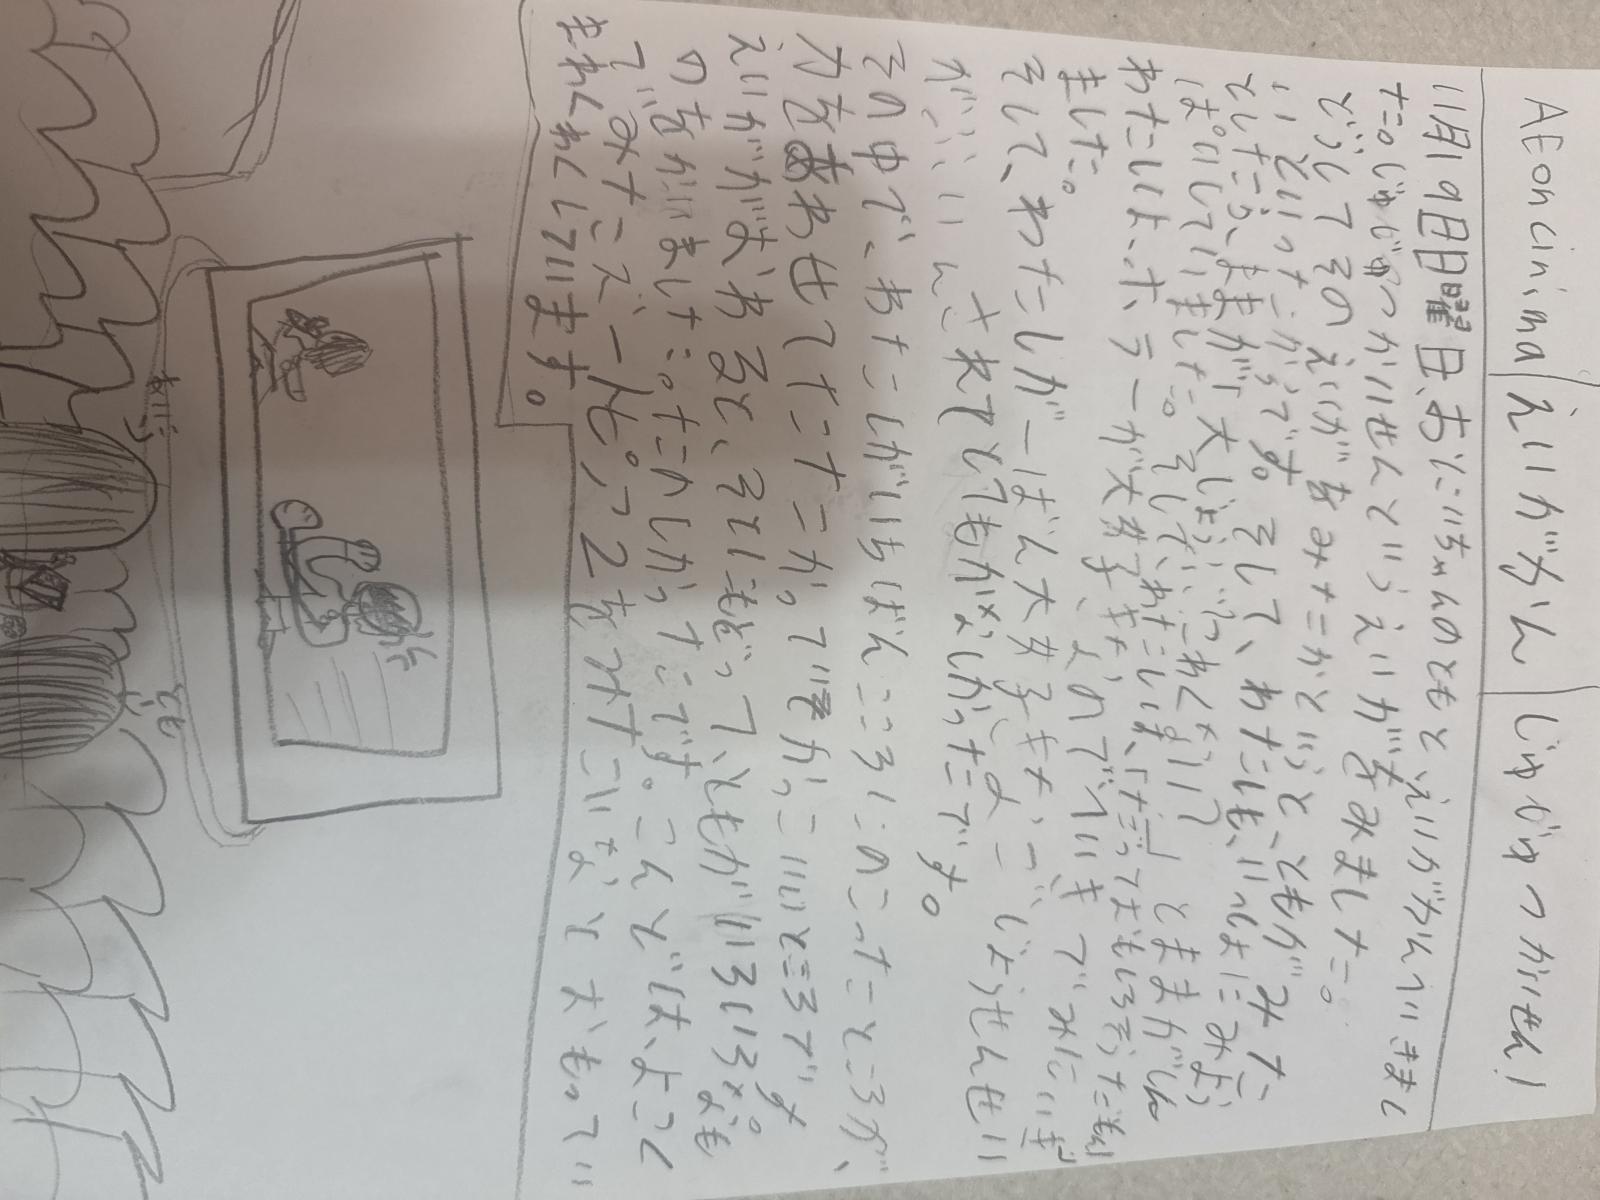 AEoncinima えいがかん じゅじゅつかいせん!
11月9日日曜日、おにいちゃんのともと、えいがかんついきまし
た。じゅじゅつかいせんというえいがをみました。
どうしてそのえいがをみたかというと、ともがみた
いといったからです。そして、わたしも、いっしょにみよう
としたら、ままが「大じょうぶ?これくない?」としん
ぱいしていました。そして、わたしは、「だっておもしろそうだもん!
わたしは、ホラーが大好きなので、いき
ました。
そして、わたしが一ばん大好きな、ごじょうせんせい
が、ふういんされてとてもかなしかったです。
その中で、わたしがいちばんこころにのこったところが、
力をあわせてたたかってぞかっこいいところです。
えいががおわると、そとにもどって、ともがいろいろなも
のをかいました。たのしかったです。こんどは、よっく
でみたこえーんぺっ2をみたいなとおもってい
まれくれしています。
あいり
とも